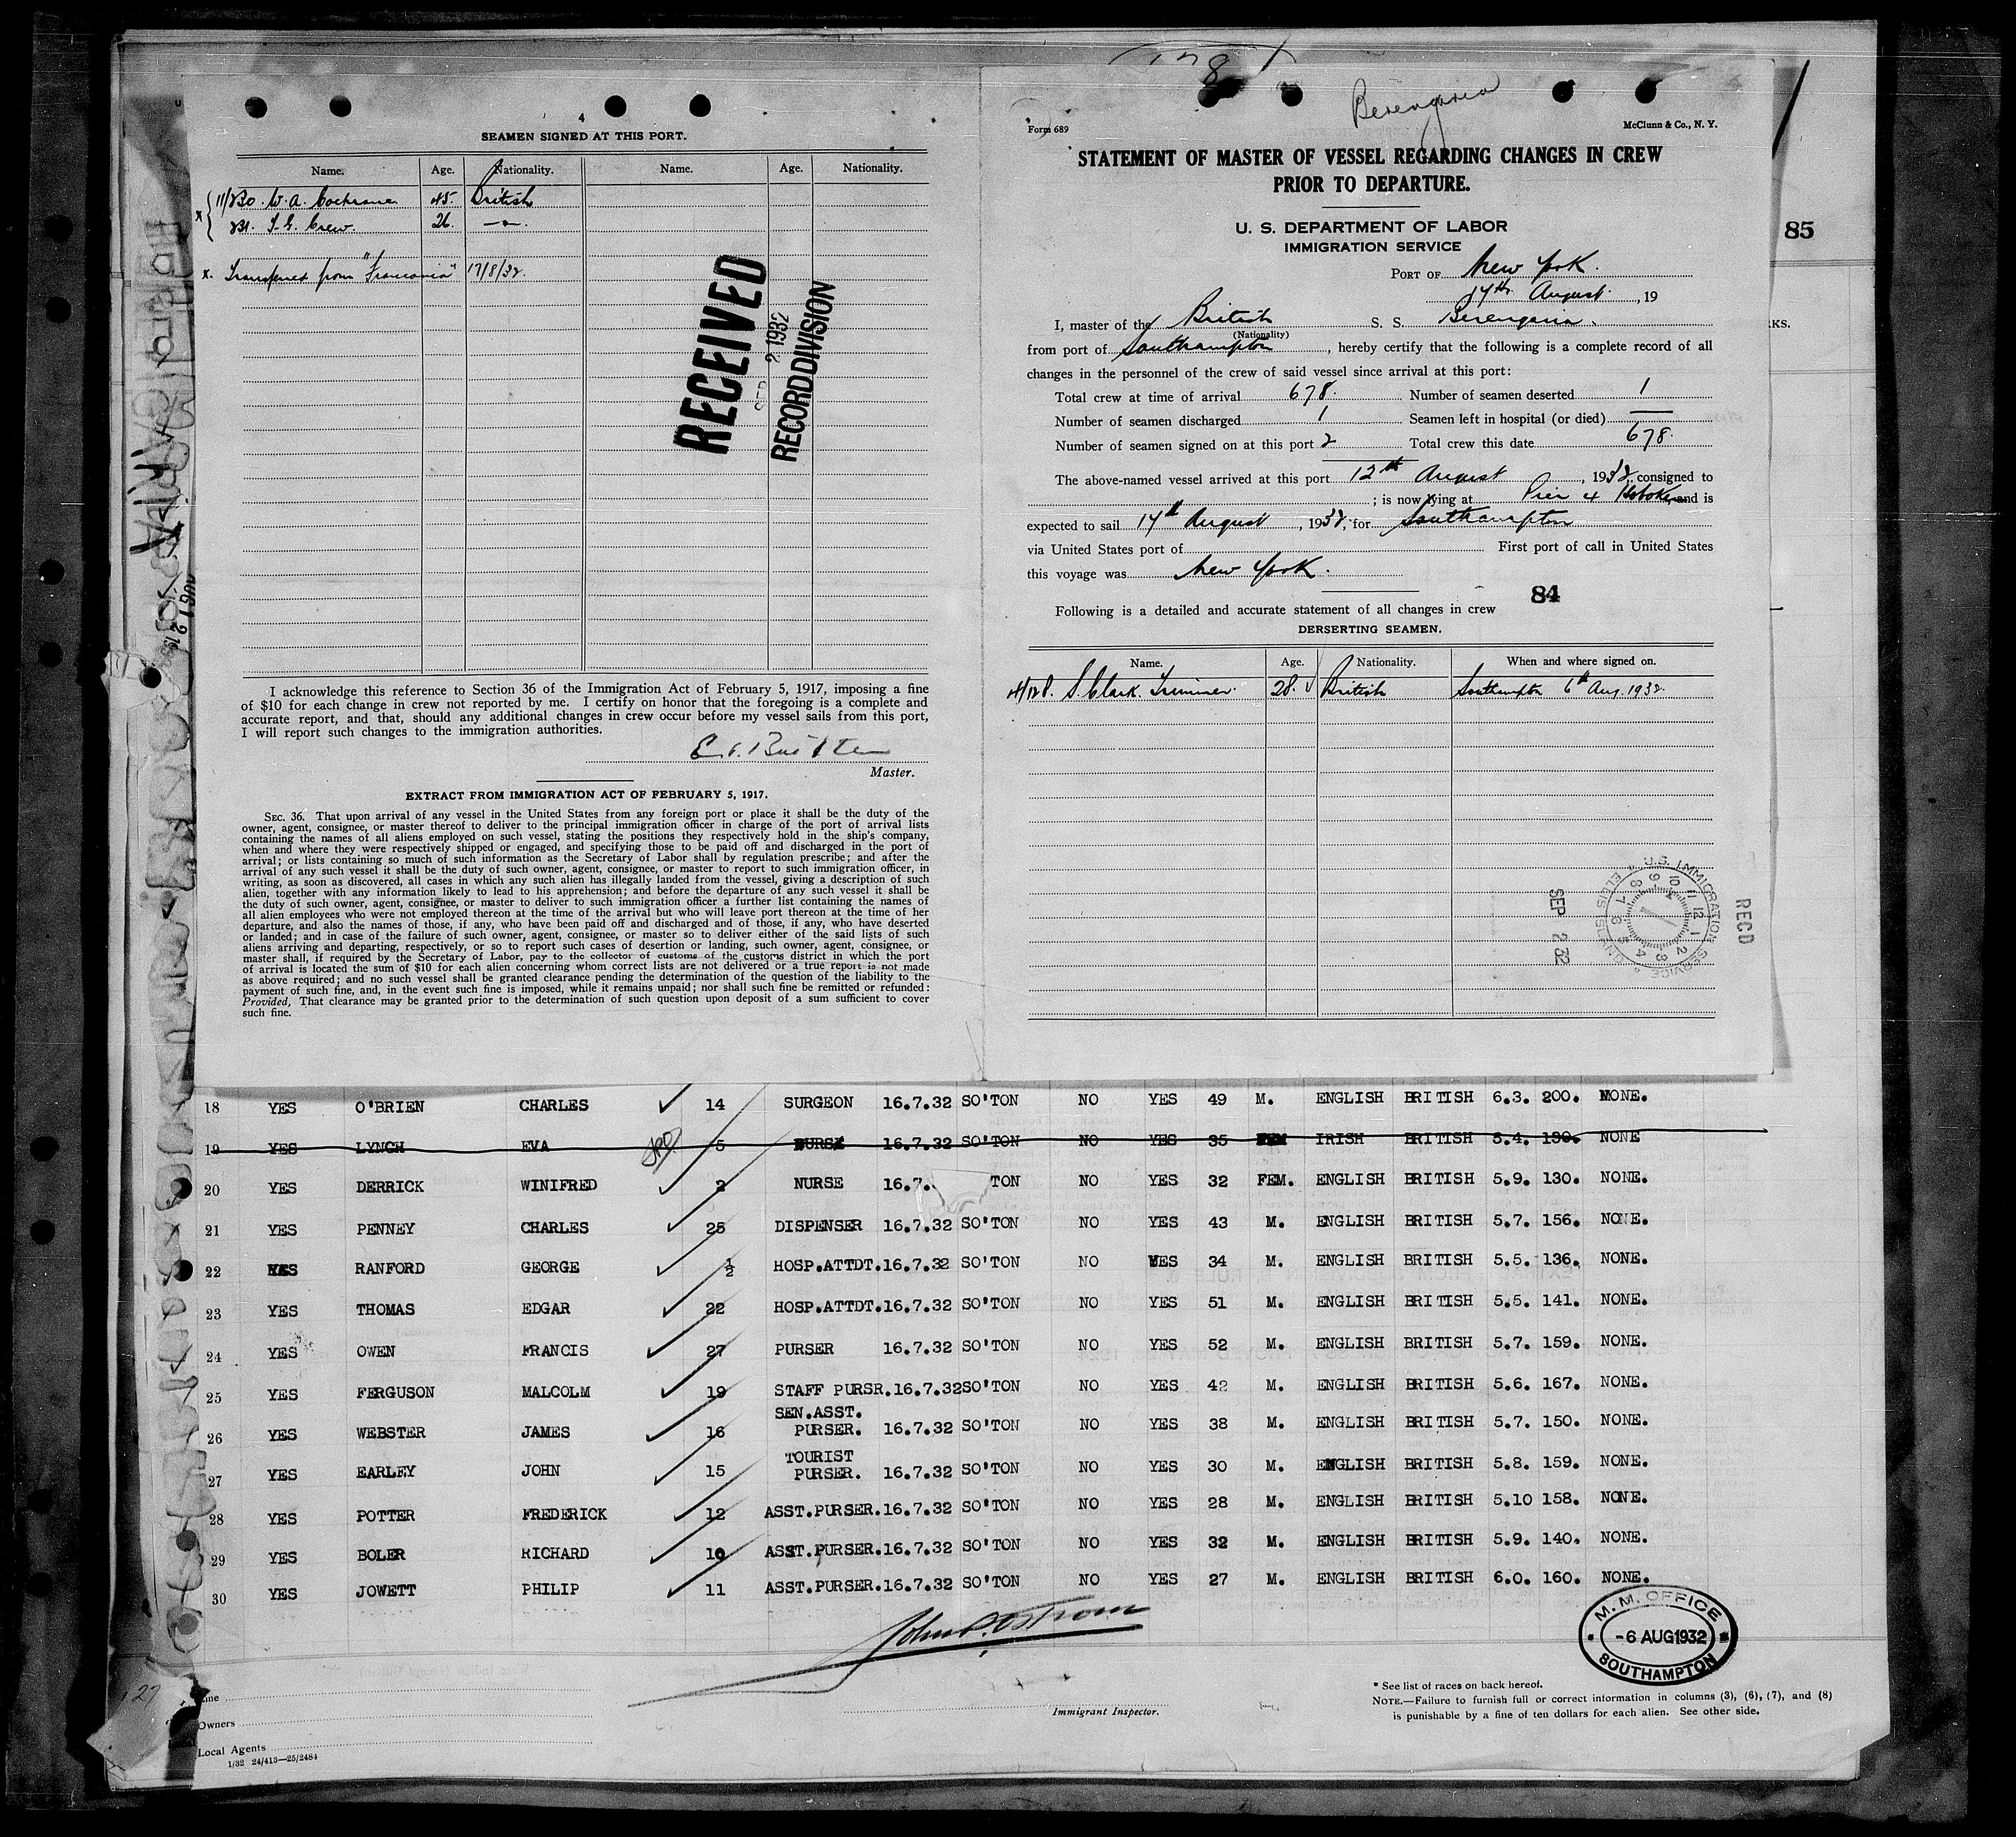 4
SEAMEN SIGNED AT THIS PORT.
Name. Age. Nationality. Name. Age. Nationality.
11/830. W. A. Cochrane 45. British
831. J. G. Crew. 26. —"—.
x. Transferred from "Franconia" 17/8/32.
RECEIVED
SEP 2 1932
RECORD DIVISION
I acknowledge this reference to Section 36 of the Immigration Act of February 5, 1917, imposing a fine
of $10 for each change in crew not reported by me. I certify on honor that the foregoing is a complete and
accurate report, and that, should any additional changes in crew occur before my vessel sails from this port,
I will report such changes to the immigration authorities.
Master.
EXTRACT FROM IMMIGRATION ACT OF FEBRUARY 5, 1917.
SEC. 36. That upon arrival of any vessel in the United States from any foreign port or place it shall be the duty of the
owner, agent, consignee, or master thereof to deliver to the principal immigration officer in charge of the port of arrival lists
containing the names of all aliens employed on such vessel, stating the positions they respectively hold in the ship's company,
when and where they were respectively shipped or engaged, and specifying those to be paid off and discharged in the port of
arrival; or lists containing so much of such information as the Secretary of Labor shall by regulation prescribe; and after the
arrival of any such vessel it shall be the duty of such owner, agent, consignee, or master to report to such immigration officer, in
writing, as soon as discovered, all cases in which any such alien has illegally landed from the vessel, giving a description of such
alien, together with any information likely to lead to his apprehension; and before the departure of any such vessel it shall be
the duty of such owner, agent, consignee, or master to deliver to such immigration officer a further list containing the names of
all alien employees who were not employed thereon at the time of the arrival but who will leave port thereon at the time of her
departure, and also the names of those, if any, who have been paid off and discharged and of those, if any, who have deserted
or landed; and in case of the failure of such owner, agent, consignee, or master so to deliver either of the said lists of such
aliens arriving and departing, respectively, or so to report such cases of desertion or landing, such owner, agent, consignee, or
master shall, if required by the Secretary of Labor, pay to the collector of customs of the customs district in which the port
of arrival is located the sum of $10 for each alien concerning whom correct lists are not delivered or a true report is not made
as above required; and no such vessel shall be granted clearance pending the determination of the question of the liability to the
payment of such fine, and, in the event such fine is imposed, while it remains unpaid; nor shall such fine be remitted or refunded:
Provided, That clearance may be granted prior to the determination of such question upon deposit of a sum sufficient to cover
such fine.
Berengaria
Form 689 McClunn & Co., N. Y.
STATEMENT OF MASTER OF VESSEL REGARDING CHANGES IN CREW
PRIOR TO DEPARTURE.
U. S. DEPARTMENT OF LABOR
IMMIGRATION SERVICE
85
PORT OF New York.
17th August. , 19
I, master of the British S. S. Berengaria.
(Nationality)
from port of Southampton , hereby certify that the following is a complete record of all
changes in the personnel of the crew of said vessel since arrival at this port:
Total crew at time of arrival 678. Number of seamen deserted 1
Number of seamen discharged 1 Seamen left in hospital (or died) —
Number of seamen signed on at this port 2 Total crew this date 678.
The above-named vessel arrived at this port 12th August , 1932, consigned to
; is now lying at Pier 4 Hoboken and is
expected to sail 17th August , 1932, for Southampton
via United States port of First port of call in United States
this voyage was New York.
84
Following is a detailed and accurate statement of all changes in crew
DERSERTING SEAMEN.
Name. Age. Nationality. When and where signed on.
S. Clark. Trimmer. 28. British Southampton 6th Aug. 1932.
U.S. IMMIGRATION SERVICE
ELLIS ISLAND
SEP 2 32
RECD
18 YES O'BRIEN CHARLES 14 SURGEON 16.7.32 SO'TON NO YES 49 M. ENGLISH BRITISH 6.3. 200. NONE.
19 YES LYNCH EVA 5 NURSE 16.7.32 SO'TON NO YES 35 FEM IRISH BRITISH 5.4. 130. NONE
20 YES DERRICK WINIFRED 2 NURSE 16.7. TON NO YES 32 FEM. ENGLISH BRITISH 5.9. 130. NONE.
21 YES PENNEY CHARLES 25 DISPENSER 16.7.32 SO'TON NO YES 43 M. ENGLISH BRITISH 5.7. 156. NONE.
22 YES RANFORD GEORGE ½ HOSP.ATTDT. 16.7.32 SO'TON NO YES 34 M. ENGLISH BRITISH 5.5. 136. NONE.
23 YES THOMAS EDGAR 22 HOSP.ATTDT. 16.7.32 SO'TON NO YES 51 M. ENGLISH BRITISH 5.5. 141. NONE.
24 YES OWEN FRANCIS 27 PURSER 16.7.32 SO'TON NO YES 52 M. ENGLISH BRITISH 5.7. 159. NONE.
25 YES FERGUSON MALCOLM 19 STAFF PURSR. 16.7.32 SO'TON NO YES 42 M. ENGLISH BRITISH 5.6. 167. NONE.
26 YES WEBSTER JAMES 16 SEN.ASST. PURSER. 16.7.32 SO'TON NO YES 38 M. ENGLISH BRITISH 5.7. 150. NONE.
27 YES EARLEY JOHN 15 TOURIST PURSER. 16.7.32 SO'TON NO YES 30 M. ENGLISH BRITISH 5.8. 159. NONE.
28 YES POTTER FREDERICK 12 ASST.PURSER. 16.7.32 SO'TON NO YES 28 M. ENGLISH BRITISH 5.10 158. NONE.
29 YES BOLER RICHARD 10 ASST.PURSER. 16.7.32 SO'TON NO YES 32 M. ENGLISH BRITISH 5.9. 140. NONE.
30 YES JOWETT PHILIP 11 ASST.PURSER. 16.7.32 SO'TON NO YES 27 M. ENGLISH BRITISH 6.0. 160. NONE.
M. M. OFFICE
-6 AUG 1932
SOUTHAMPTON
127
Line
Owners
Local Agents
1/32 24/413—25/2484
Immigrant Inspector.
* See list of races on back hereof.
NOTE.—Failure to furnish full or correct information in columns (3), (6), (7), and (8)
is punishable by a fine of ten dollars for each alien. See other side.